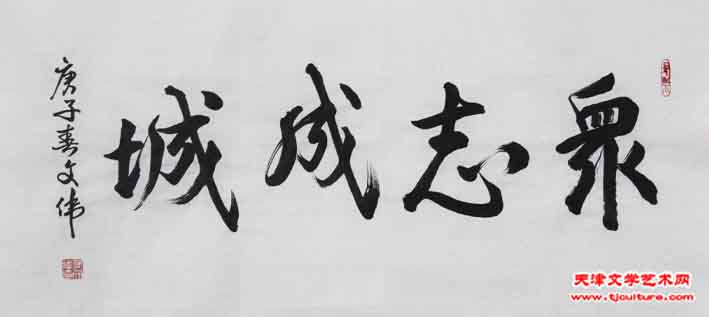 眾志成城
庚子春文偉
天津文学艺术网
www.tjculture.com